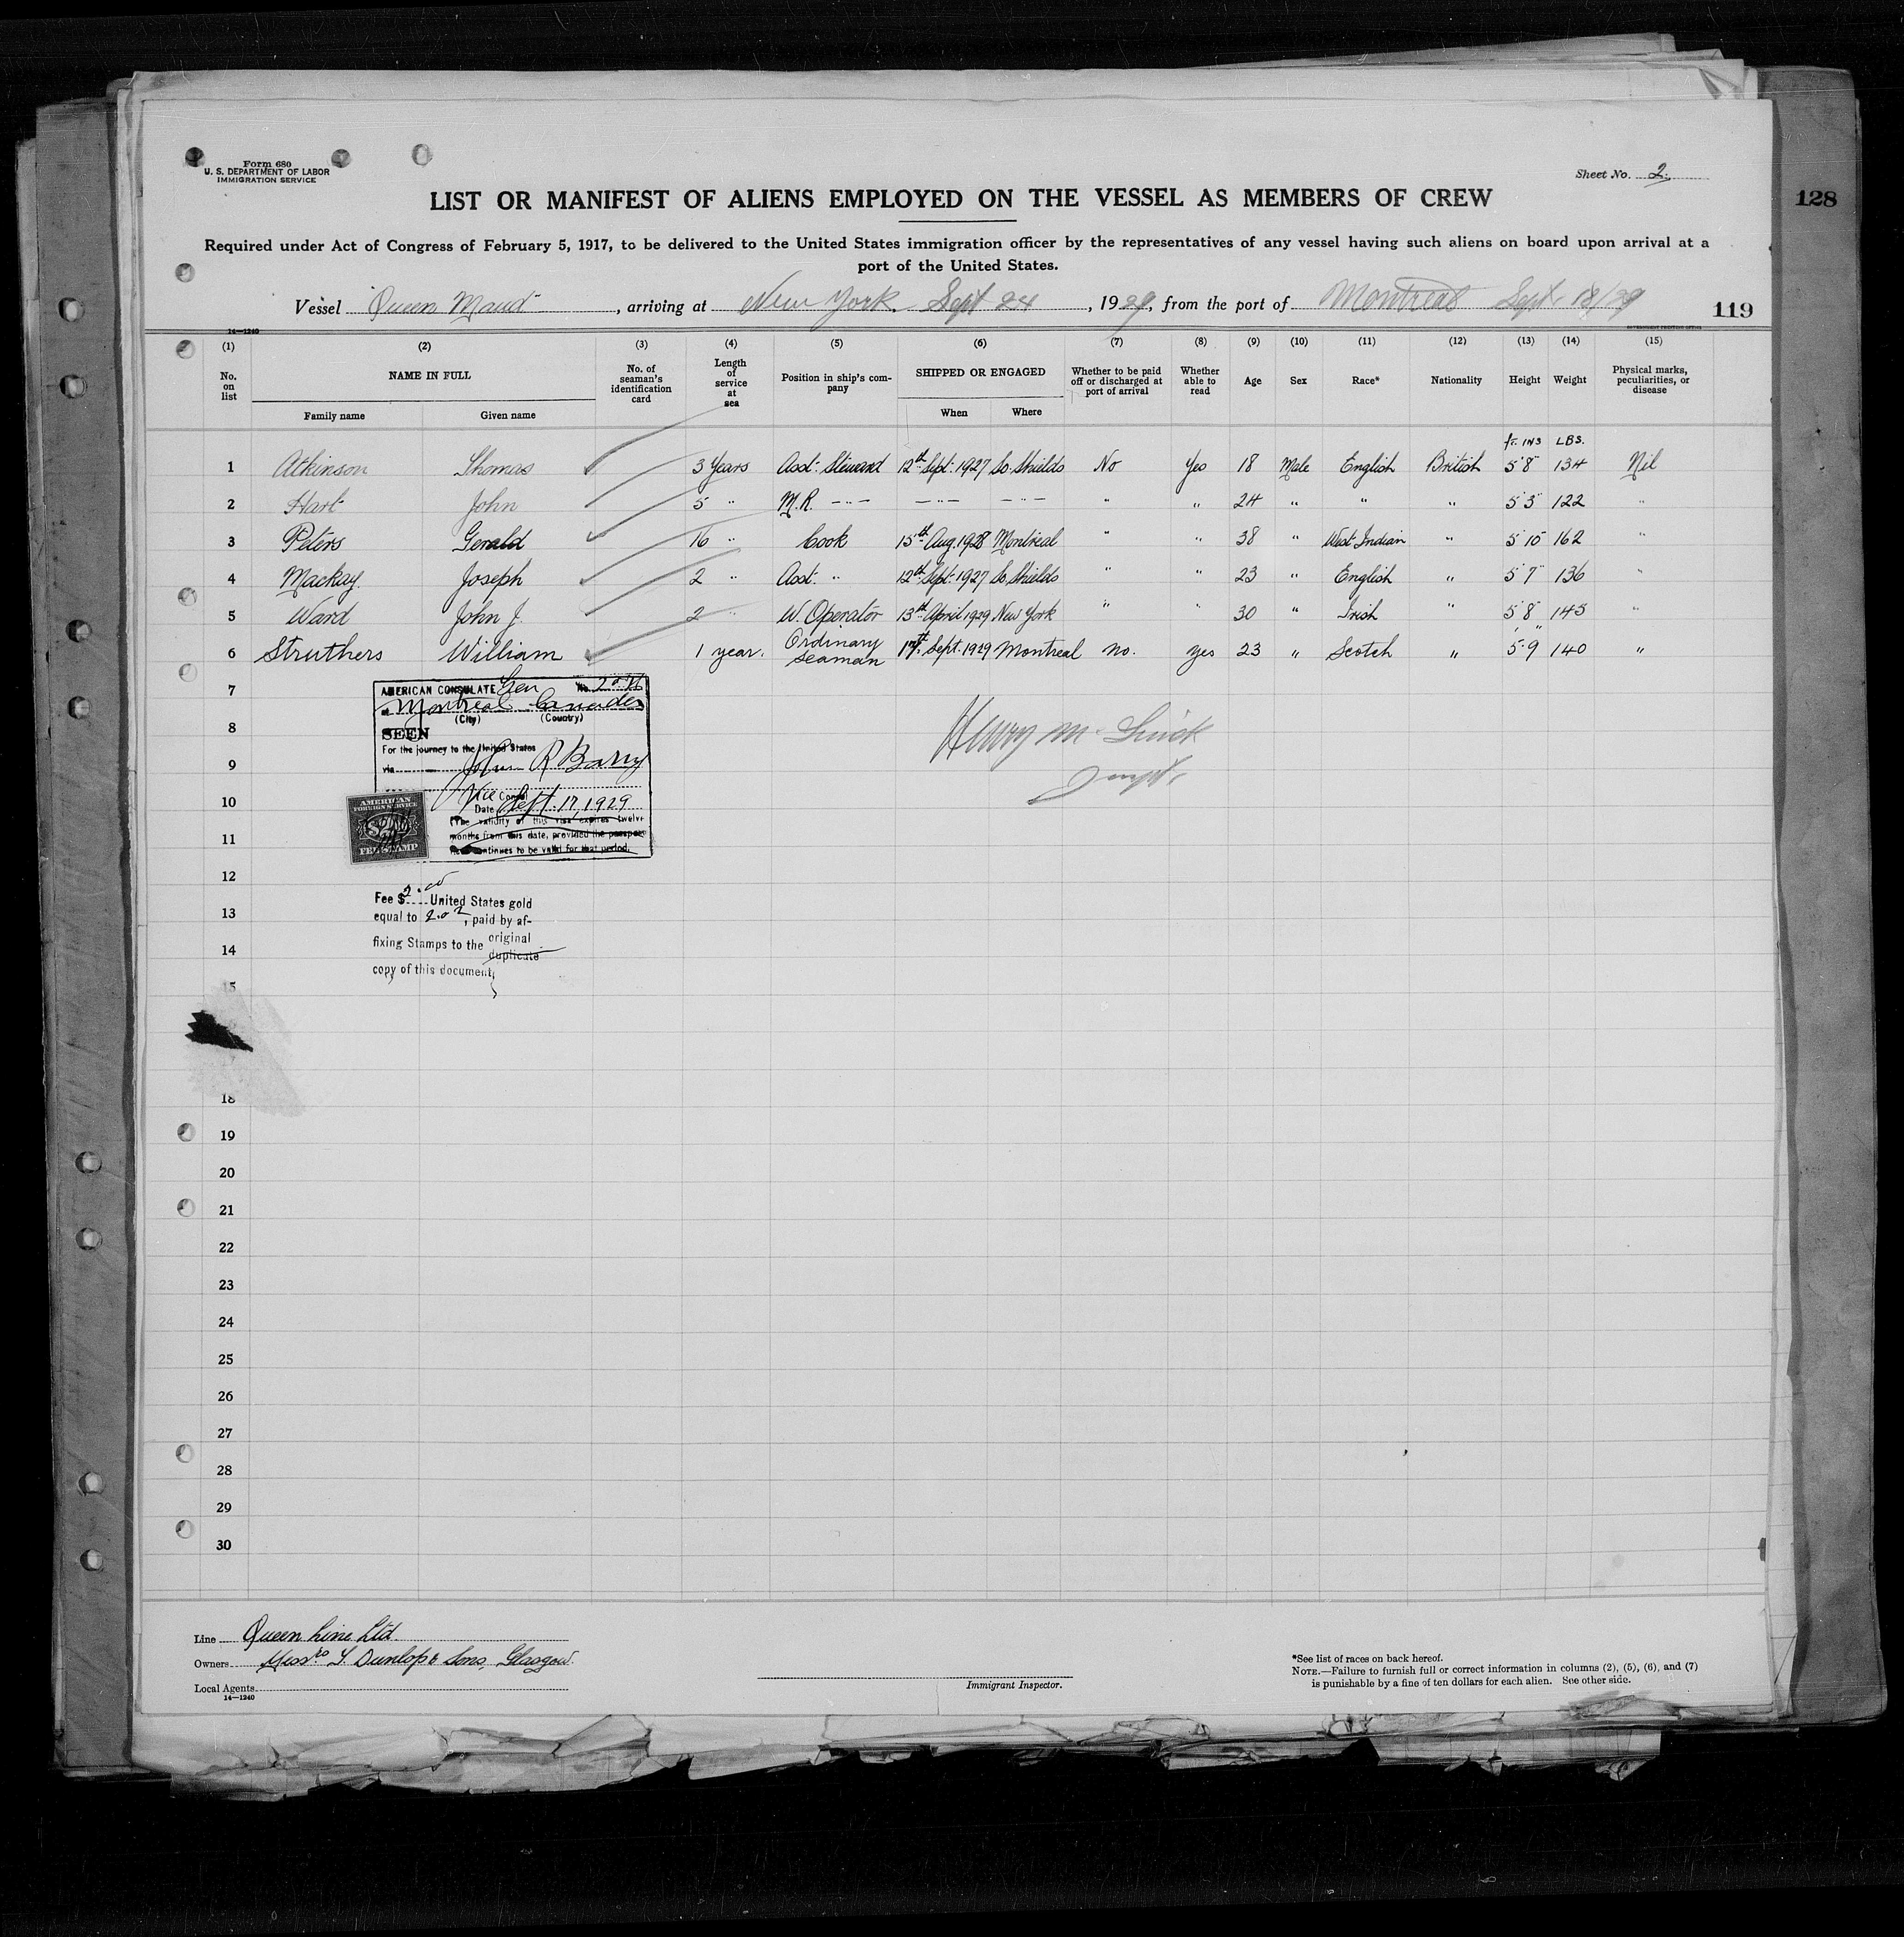 Form 680
U. S. DEPARTMENT OF LABOR
IMMIGRATION SERVICE
Sheet No. 2.
LIST OR MANIFEST OF ALIENS EMPLOYED ON THE VESSEL AS MEMBERS OF CREW
128
Required under Act of Congress of February 5, 1917, to be delivered to the United States immigration officer by the representatives of any vessel having such aliens on board upon arrival at a
port of the United States.
Vessel "Queen Maud", arriving at New York. Sept 24, 1929, from the port of Montreal Sept. 18/29
119
14—1240
GOVERNMENT PRINTING OFFICE
(1) (2) (3) (4) (5) (6) (7) (8) (9) (10) (11) (12) (13) (14) (15)
No. on list NAME IN FULL Family name Given name No. of seaman's identification card Length of service at sea Position in ship's company SHIPPED OR ENGAGED When Where Whether to be paid off or discharged at port of arrival Whether able to read Age Sex Race* Nationality Height Weight Physical marks, peculiarities, or disease
ft. INS LBS.
1 Atkinson Thomas 3 Years Asst. Steward 12th Sept. 1927 So. Shields No Yes 18 Male English British 5'8" 134 Nil
2 Hart John 5 " M.R. —"— —"— —"— " " 24 " " " 5'3" 122 "
3 Peters Gerald 16 " Cook 15th Aug. 1928 Montreal " " 38 " West Indian " 5'10" 162 "
4 Mackay Joseph 2 " Asst. " 12th Sept. 1927 So. Shields " " 23 " English " 5'7" 136 "
5 Ward John J. 2 " W. Operator 13th April 1929 New York " " 30 Irish " 5'8" 145 "
6 Struthers William 1 year. Ordinary Seaman 17th Sept. 1929 Montreal no. yes 23 " Scotch " 5'9" 140 "
7
8
9
10
11
12
13
14
15
18
19
20
21
22
23
24
25
26
27
28
29
30
AMERICAN CONSULATE Gen No.
at Montreal Canada
(City) (Country)
SEEN
For the journey to the United States
via John R Barry
Vice Consul
Date Sept. 17, 1929
(The validity of this visa expires twelve
months from this date, provided the passport
continues to be valid for that period.
AMERICAN
FOREIGN SERVICE
FEE STAMP
Fee $2.00 United States gold
equal to 2.02, paid by af-
fixing Stamps to the original
duplicate
copy of this document
Henry M
Line Queen Line Ltd.
Owners Messrs T. Dunlop & Sons, Glasgow.
Local Agents
14—1240
Immigrant Inspector.
*See list of races on back hereof.
NOTE.—Failure to furnish full or correct information in columns (2), (5), (6), and (7)
is punishable by a fine of ten dollars for each alien. See other side.